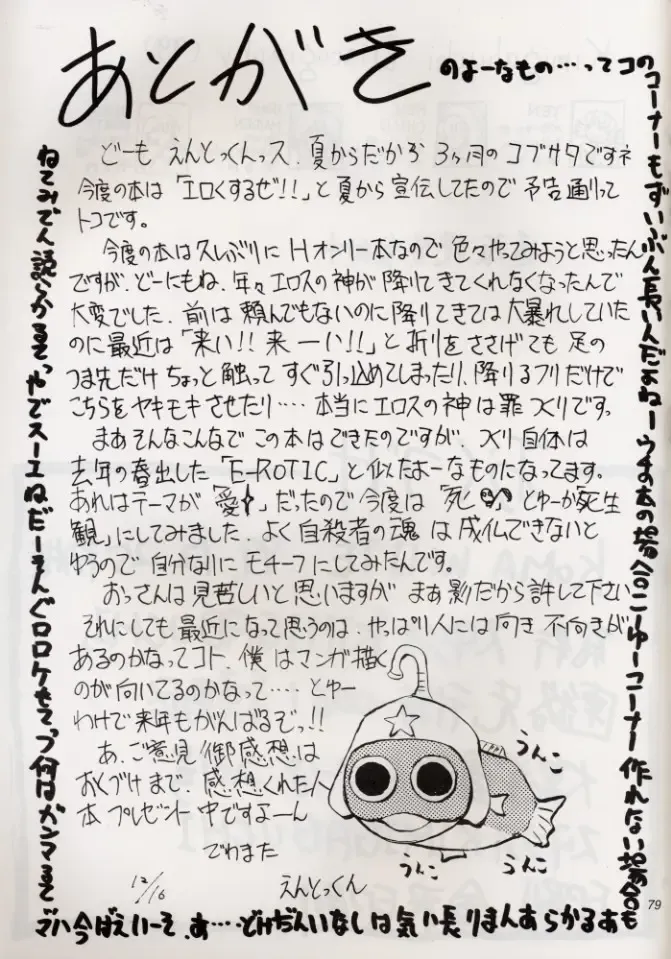 あとがき
のよーなもの…ってコのコーナーもずいぶん長いんだよねーウチの本の場合こーゆーコーナー作れない場合も
あるからあんまり長い気はしないんだけど…。あ、そーいえば今ハマ
ってるマンガは何つっても
どーも えんとっくんっス.夏からだから 3ヶ月のゴブサタですネ
今度の本は「エロくするぜ!!」と夏から宣伝してたので 予告通りって
トコです。
今度の本は久しぶりに Hオンリー本なので 色々やってみようと思ったん
ですが.どーにもね.年々エロスの神が降りてきてくれなくなったんで
大変でした.前は頼んでもないのに降りてきては大暴れしていた
のに最近は「来い!!来ーい!!」と祈りをささげても 足の
つま先だけ ちょっと触って すぐ引っ込めてしまったり、降りるフリだけで
こちらをヤキモキさせたり‥‥本当にエロスの神は罪つくりです。
まあそんなこんなで この本はできたのですが.つくり自体は
去年の春出した「E-ROTIC」と似たよーなものになってます。
あれはテーマが「愛」だったので今度は「死」とゆーか「死生
観」にしてみました.よく自殺者の魂は成仏できないと
ゆうので自分なりにモチーフにしてみたんです。
おっさんは見苦しいと思いますが まあ影だから許して下さい
それにしても最近になって思うのは.やっぱり人には向き不向きが
あるのかなってコト.僕はマンガ描く
のが向いてるのかなって‥‥とゆー
わけで来年もがんばるぞっ!!
あ.ご意見御感想は
おくづけまで.感想くれた人
本プレゼント中ですよーん
でわまた
12/16
えんとっくん
うんこ
うんこ
うんこ
79